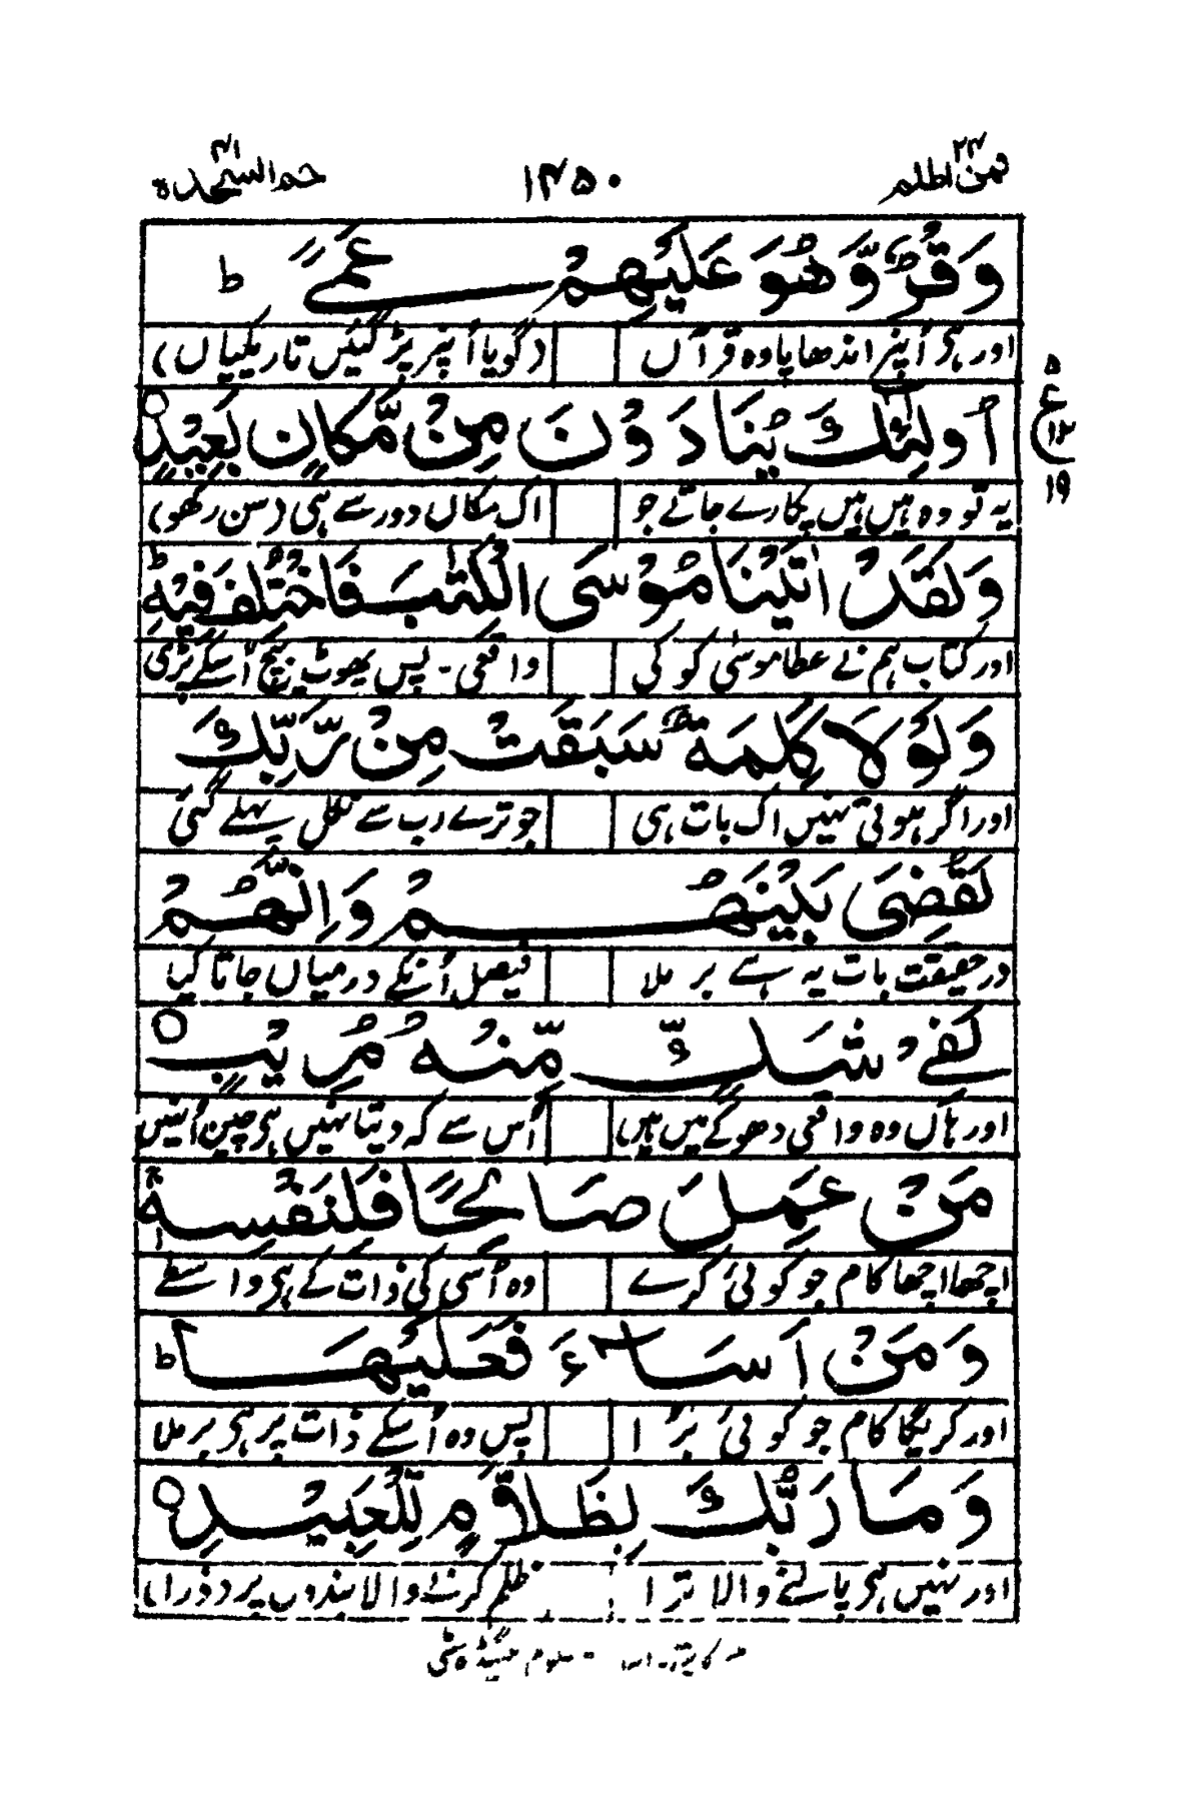 فمن اظلم ۲۴ ۱۴۵۰ حم السجدة ۴۱
وَقْرٌ وَّهُوَ عَلَيْهِمْ عَمًى ط
اور ہی اُنپر اندھاپا وہ قرآں (گویا اُنپر پڑ گئیں تاریکیاں)
اُولٰٓئِكَ يُنَادَوْنَ مِنْ مَّكَانٍۭ بَعِيْدٍ ○
۵ ع ۱۲ ۱۹
یہ تو وہ ہیں ہیں پکارے جاتے جو اک مکاں دور سے ہی (سن رکھو)
وَلَقَدْ اٰتَيْنَا مُوْسَى الْكِتٰبَ فَاخْتُلِفَ فِيْهِ ط
اور کتاب ہم نے عطا موسٰی کو کی واقعی ۔ پس پھوٹ بیچ اُسکے پڑی
وَلَوْلَا كَلِمَةٌ سَبَقَتْ مِنْ رَّبِّكَ
اور اگر ہوتی نہیں اک بات ہی جو ترے رب سے نکل پہلے گئی
لَقُضِيَ بَيْنَهُمْ وَاِنَّهُمْ
درحقیقت بات یہ ہے بر ملا فیصل اُنکے درمیاں جاتا کیا
لَفِيْ شَكٍّ مِّنْهُ مُرِيْبٍ ○
اور ہاں وہ واقعی دھوکے میں ہیں اُس سے کہ دیتا نہیں ہی چین اُنہیں
مَنْ عَمِلَ صَالِحًا فَلِنَفْسِهٖ ج
اچھا اچھا کام جو کوئی کرے وہ اُسی کی ذات کے ہی واسطے
وَمَنْ اَسَآءَ فَعَلَيْهَا ط
اور کریگا کام جو کوئی بُرا پس وہ اُسکے ذات پر ہی بر ملا
وَمَا رَبُّكَ بِظَلَّامٍ لِّلْعَبِيْدِ ○
اور نہیں ہی پالنے والا ترا ظلم کرنے والا بندوں پر (ذرا)